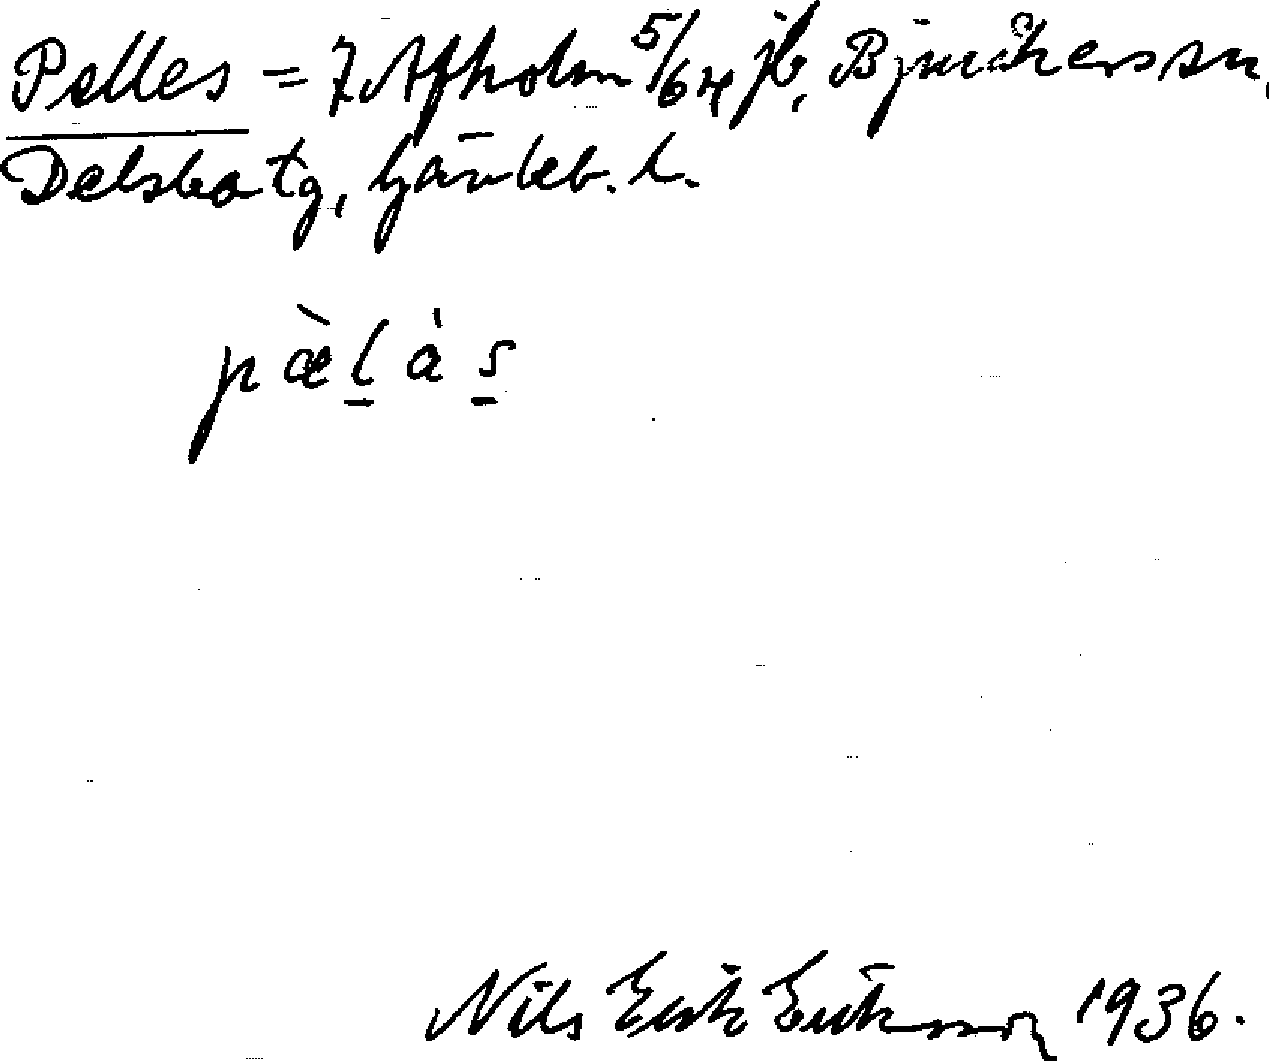 Pelles = 7 Afholm 5/64 jb, Bjuråker sn,
Delsbo tg, Gävleb. l.
pæ̀l̲às̲
Nils Erik Eriksson 1936.